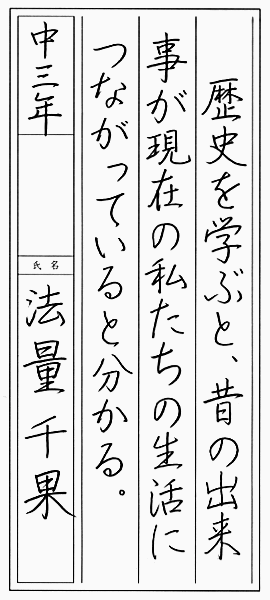 歴史を学ぶと、昔の出来
事が現在の私たちの生活に
つながっていると分かる。
中三年
氏名
法量千果